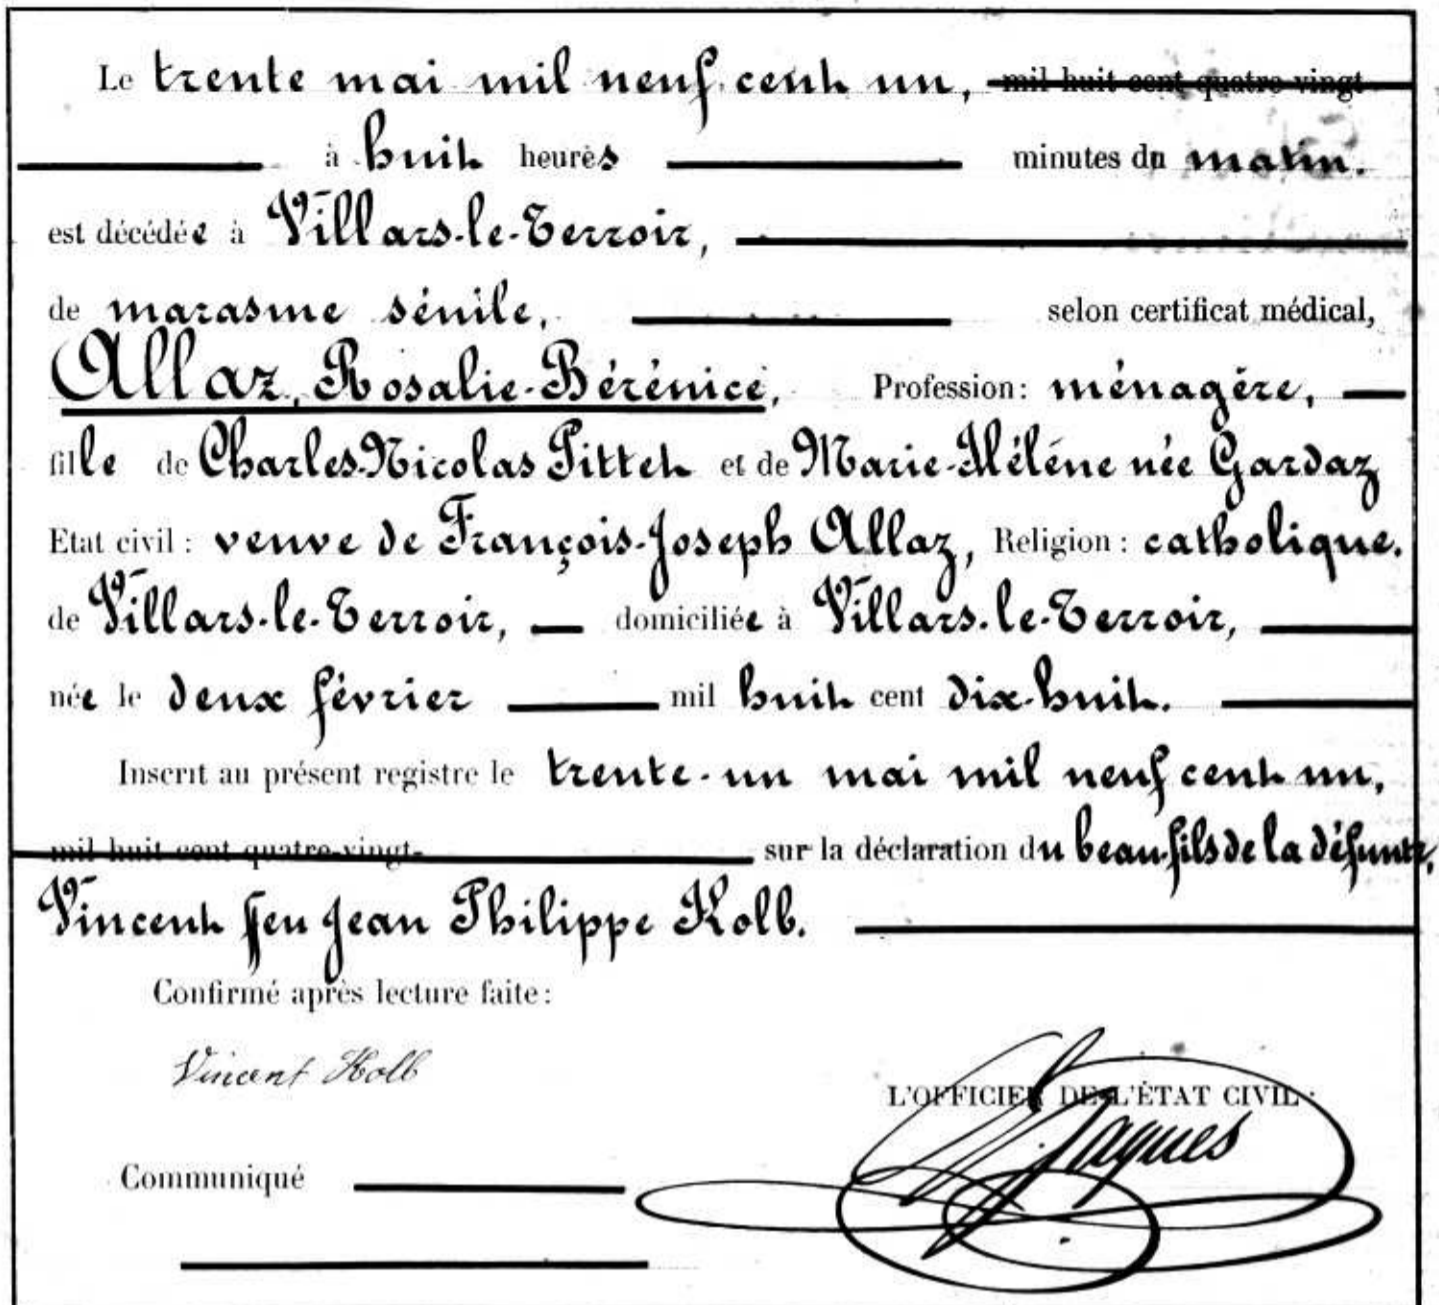 Le trente mai mil neuf cent un, mil huit cent quatre-vingt-
à huit heures minutes du matin.
est décédée à Villars-le-Terroir,
de marasme sénile, selon certificat médical,
Allaz, Rosalie-Bérénice, Profession: ménagère,
fille de Charles-Nicolas Pittet et de Marie-Hélène née Gardaz
Etat civil: veuve de François-Joseph Allaz, Religion: catholique.
de Villars-le-Terroir, domiciliée à Villars-le-Terroir,
née le deux février mil huit cent dix-huit.
Inscrit au présent registre le trente-un mai mil neuf cent un,
mil huit cent quatre-vingt- sur la déclaration du beau-fils de la défunte,
Vincent feu Jean Philippe Kolb.
Confirmé après lecture faite:
Vincent Kolb
L'OFFICIER DE L'ÉTAT CIVIL:
Jaques
Communiqué